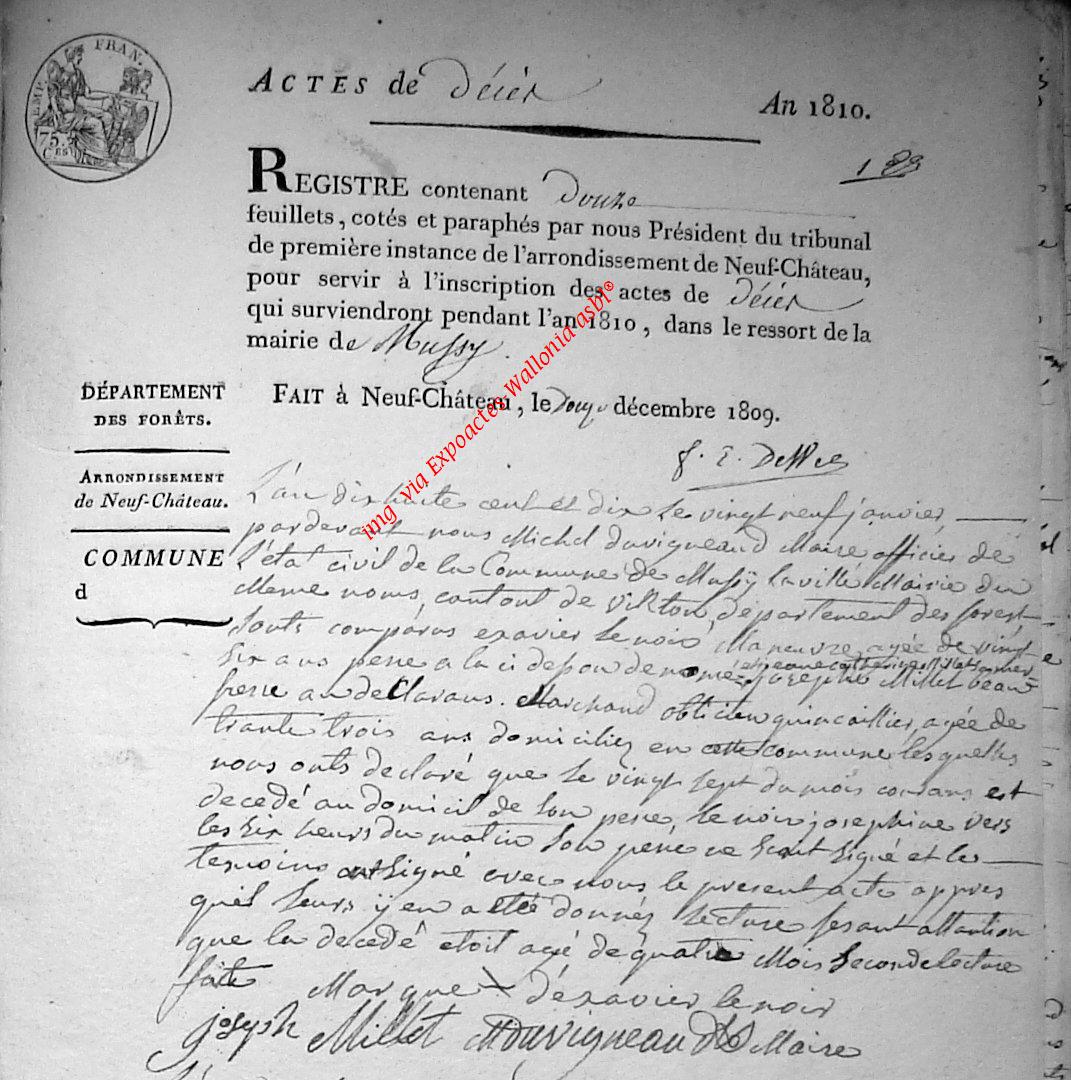 EMP. FRAN.
75.
CES
ACTES de Décès
An 1810.
REGISTRE contenant Douze
feuillets, cotés et paraphés par nous Président du tribunal
de première instance de l'arrondissement de Neuf-Château,
pour servir à l'inscription des actes de Décès
qui surviendront pendant l'an 1810, dans le ressort de la
mairie de Mussy.
DÉPARTEMENT
DES FORÊTS.
FAIT à Neuf-Château, le Douze décembre 1809.
ARRONDISSEMENT
de Neuf-Château.
COMMUNE
d
L'an dix huite cent et dix le vingt neuf janvier,
pardevant nous Michel duvigneaud Maire officier de
L'état civil de la Commune de Mussÿ laville Mairie du
Meme noms, cantont de virton, département des forest
sonts comparus exavier le noir Maneuvre, agée de vingt
six ans pere a la ci joseph Millet beau
frere au declarans. Marchand obticien quincaillier, agée de
trante trois ans domiciliez en cette commune lesquelles
nous onts declaré que le vingt sept du mois courans est
decedé au domicil de son pere, le noir josephine vers
les six heurs du matin son pere ne Signé et les
tesmoins ont signé avec nous le present acte appres
quel leurs ÿ en a etté donnez lecture fesant attantion
que la decedé etoit agé de quatre Mois Seconde lecture
faite
Marque X d'exavier lenoir
joseph Millet MDuvigneaud Maire
img via Expoactes Wallonia asbl®